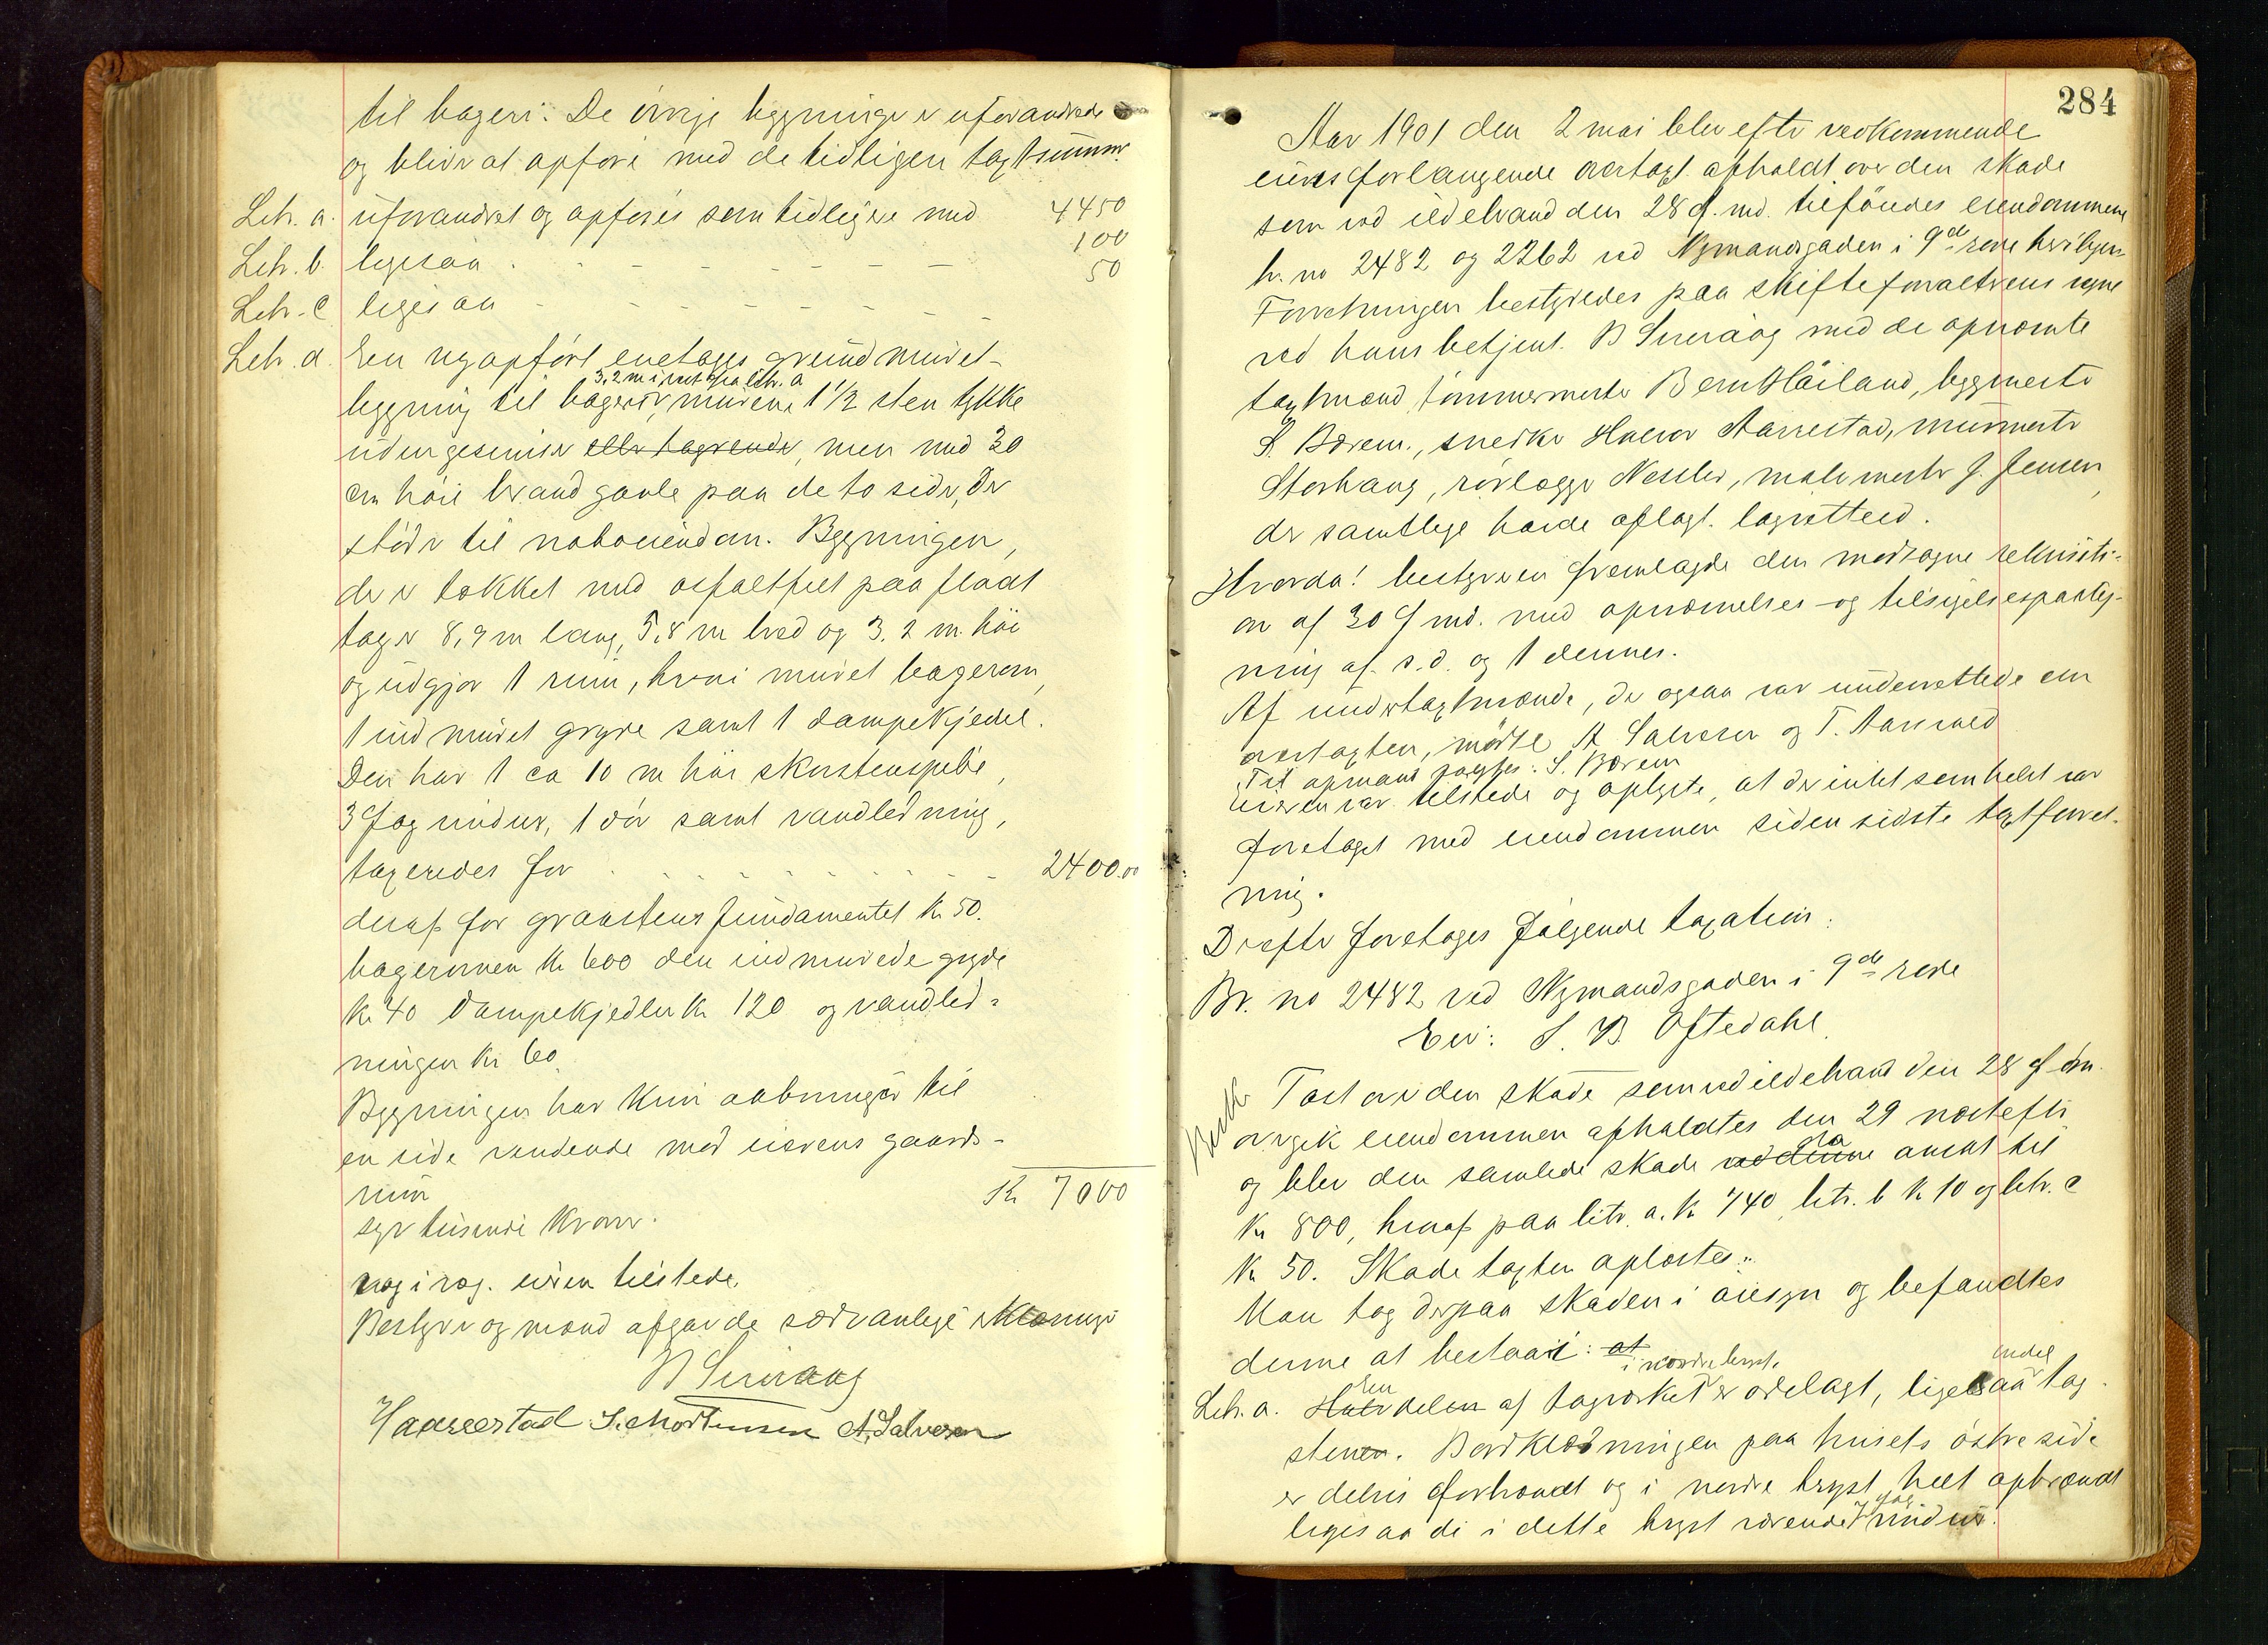 til bageri. De övrige bygninger er uforandrede
og bliver at opföre med de tidligere taxtsummer.
Litr. a. uforandret og opföres som tidligere med 4450
Litr. b. ligesaa - - - - - - - 100
Litr. c ligesaa - - - - - - - 50
Litr. d. En nyopfört enetages grundmuret
3,2 m i vest fra litr. a
bygning til bageri, murene 1 1/2 sten tykke
uden gesimser eller tagrender, men med 30
cm höie brandgavle paa de to sider, der
stöder til naboeiendom. Bygningen,
der er tækket med asfaltfilt paa fladt
tag er 8,9 m lang, 5,8 m bred og 3,2 m. höi
og udgjör 1 rum, hvori muret bagerovn,
1 indmuret gryde samt 1 dampkjedel.
Den har 1 ca 10 m höi skorstenspibe,
3 fag vinduer, 1 dör samt vandledning,
taxeredes for - - - - - - - 2400.00
deraf for graastensfundamentet kr 50.
bagerovnen kr 600 den indmurede gryde
kr 40 dampekjedlen kr 120 og vandled=
ningen kr 60.
Bygningen har kun aabninger til
en side vendende mod eierens gaards-
rum
Kr 7000
syv tusende kroner.
Eieren tilstede.
Bestyrer og mænd afgav de sædvanlige erklæringer
H Aarrestad S. Mortensen A. Salvesen
284
Aar 1901 den 2 mai blev efter vedkommende
eiers forlangende overtaxt afholdt over den skade
som ved ildebrand den 28 f. md. tilföiedes eiendommene
br. no 2482 og 2262 ved Nymandsgaden i 9de rode hersteds.
Forretningen bestyredes paa skifteforvalterens vegne
ved hans betjent. B Suraag med de opnævnte
taxtmænd, tömmermester Bern Höiland, bygmester
S. Bærem., snedker Halvor Aarrestad, murmester
Storhaug, rörlægger Nessler, malermester J. Jensen,
der samtlige havde aflagt lagretteed.
Hvorda! bestyreren fremlagde den modtagne rekvisiti-
on af 30 f md. med opnævnelses- og tilsigelsespaateg-
ning af s.d. og 1 dennes.
Af undertaxtmænde, der ogsaa var underrettede om
overtaxten, mödte A Salvesen og T. Aanensen
Til opmand valgtes: S. Bærem
Eieren var tilstede og oplyste, at der intet somhelst var
foretaget med eiendommen siden sidste taxtforret-
ning.
Derefter foretoges fölgende taxation:
Br. no 2482 ved Nymandsgaden i 9de rode
Eier: S. B. Oftedahl.
Taxt over den skade som ved ildebrand den 28 f. dm.
overgik eiendommen afholdtes den 29 næstefter
og blev den samlede skade ved denne ansat til
kr 800, heraf paa litr. a. kr 740, litr. b kr 10 og litr. c
kr 50. Skadetaxten oplæstes.
Man tog derpaa skaden i öiesyn og befandtes
denne at bestaa i: at
i nordre bryst. endel
Litr. a. En delen af tagværket er ödelagt, ligesaa tag-
stenen. Bordklædningen paa husets östre side
er delvis forbrændt og i nordre bryst helt opbrændt
ligesaa de i dette bryst værende 7 fag vinduer.